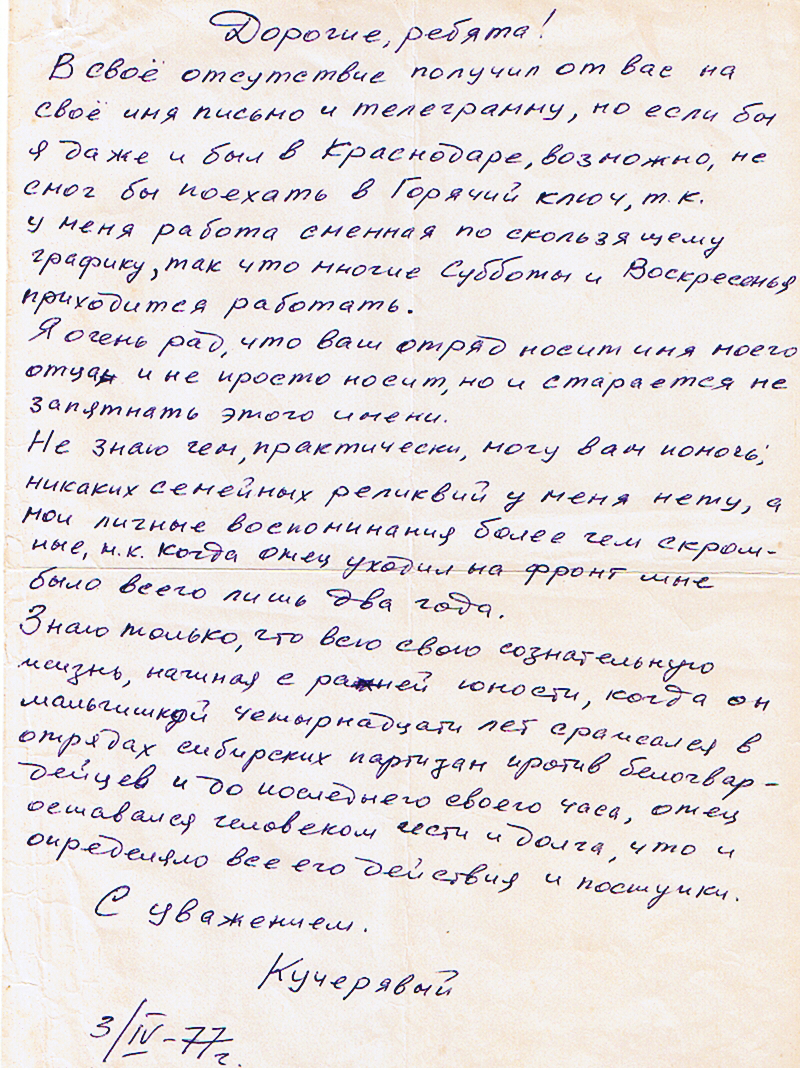 Дорогие, ребята!
В своё отсутствие получил от вас на
своё имя письмо и телеграмму, но если бы
я даже и был в Краснодаре, возможно, не
смог бы поехать в Горячий ключ, т.к.
у меня работа сменная по скользящему
графику, так что многие Субботы и Воскресенья
приходится работать.
Я очень рад, что ваш отряд носит имя моего
отца и не просто носит, но и старается не
запятнать этого имени.
Не знаю чем, практически, могу вам помочь,
никаких семейных реликвий у меня нету, а
мои личные воспоминания более чем скром-
ные, т.к. когда отец уходил на фронт мне
было всего лишь два года.
Знаю только, что всю свою сознательную
жизнь, начиная с ранней юности, когда он
мальчишкой четырнадцати лет сражался в
отрядах сибирских партизан против белогвар-
дейцев и до последнего своего часа, отец
оставался человеком чести и долга, что и
определяло все его действия и поступки.
С уважением.
Кучерявый
3/IV-77г.